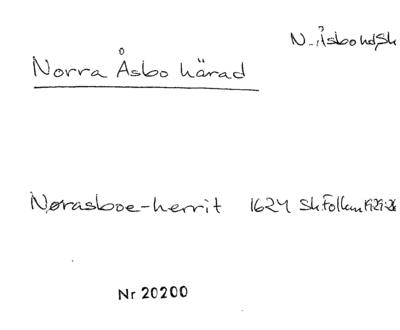 N. Åsbo hd, Sk
Norra Åsbo härad
Nørasboe-herrit 1624 Sk Follam 1929:26
Nr 20200